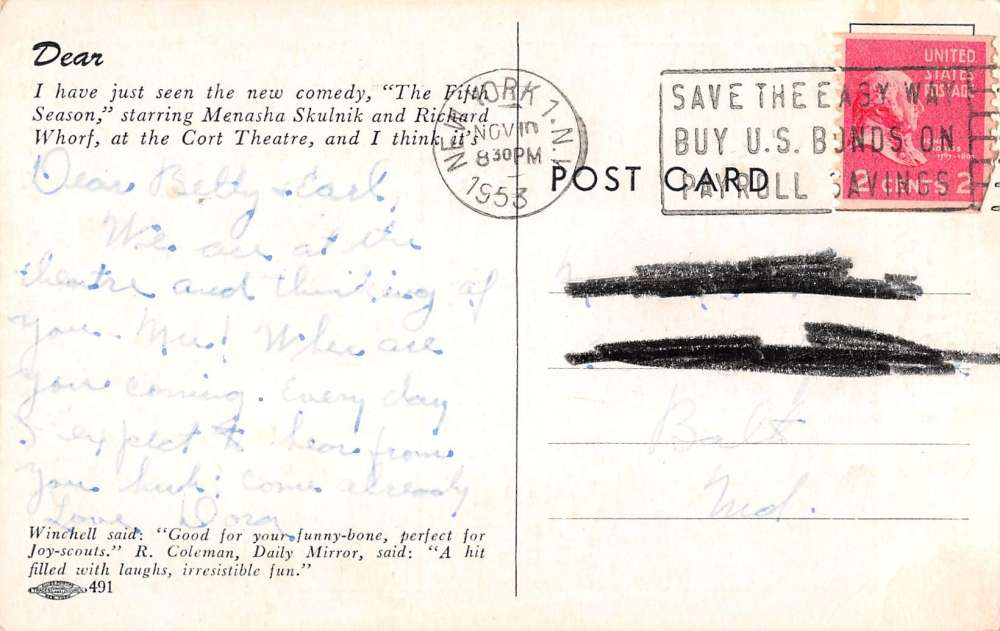 Dear
I have just seen the new comedy, "The Fifth
Season," starring Menasha Skulnik and Richard
Whorf, at the Cort Theatre, and I think it's
Dear Betty & Earl,
We are at the
theatre and thinking of
you. When are
you coming. Every day
I expect to hear from
you come already
Love, Dora
Winchell said: "Good for your funny-bone, perfect for
Joy-scouts." R. Coleman, Daily Mirror, said: "A hit
filled with laughs, irresistible fun."
491
NEW YORK 1, N.Y.
NOV 10
8 30 PM
1953
SAVE THE EASY WAY
BUY U.S. BONDS ON
PAYROLL SAVINGS
UNITED
STATES
POSTAGE
2 CENTS 2
POST CARD
Balt
Md.